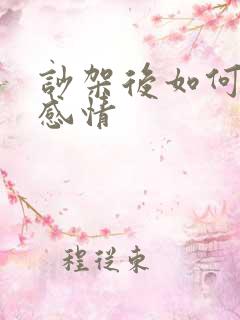 訡架後如何
感情
程從東